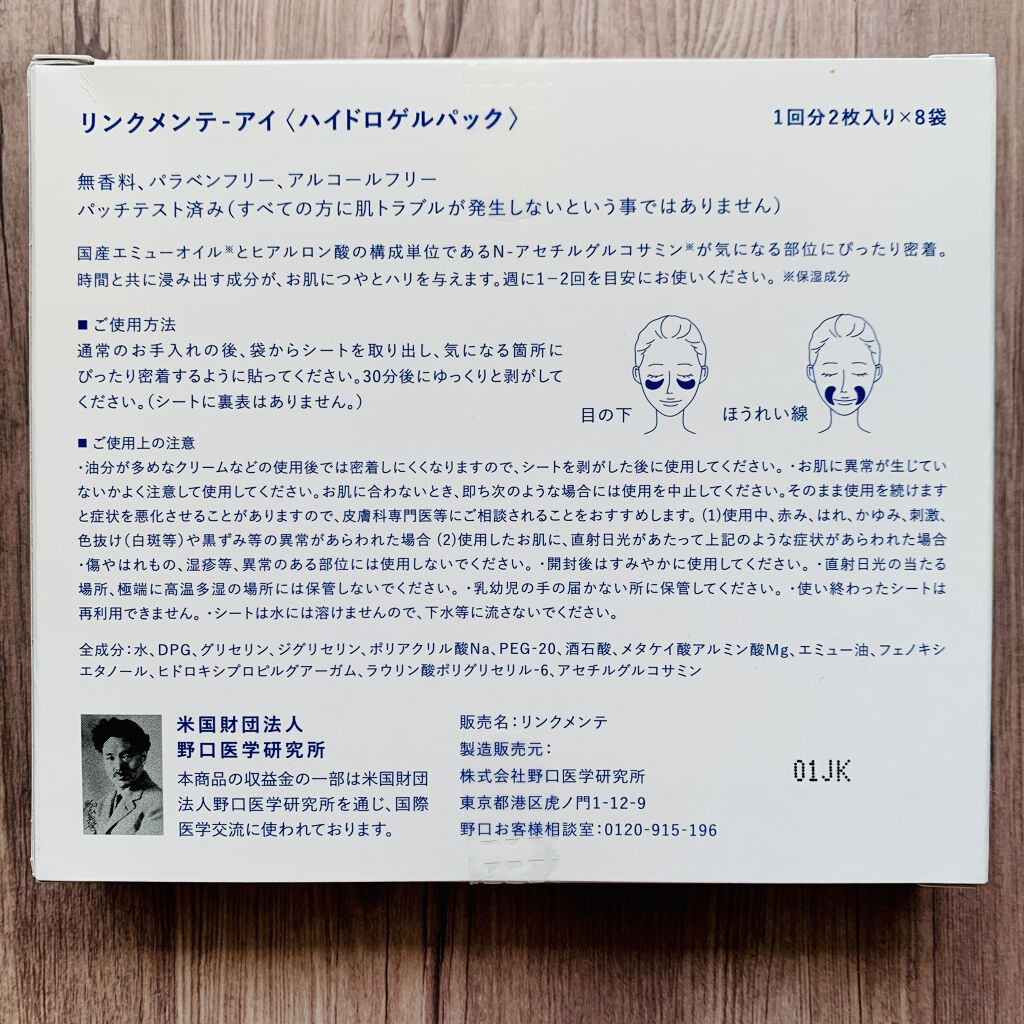 リンクメンテ-アイ〈ハイドロゲルパック〉
1回分2枚入り×8袋
無香料、パラベンフリー、アルコールフリー
パッチテスト済み(すべての方に肌トラブルが発生しないという事ではありません)
国産エミューオイル※とヒアルロン酸の構成単位であるN-アセチルグルコサミン※が気になる部位にぴったり密着。
時間と共に浸み出す成分が、お肌につやとハリを与えます。週に1−2回を目安にお使いください。 ※保湿成分
■ ご使用方法
通常のお手入れの後、袋からシートを取り出し、気になる箇所に
ぴったり密着するように貼ってください。30分後にゆっくりと剥がして
ください。(シートに裏表はありません。)
目の下
ほうれい線
■ ご使用上の注意
・油分が多めなクリームなどの使用後では密着しにくくなりますので、シートを剥がした後に使用してください。 ・お肌に異常が生じてい
ないかよく注意して使用してください。お肌に合わないとき、即ち次のような場合には使用を中止してください。そのまま使用を続けます
と症状を悪化させることがありますので、皮膚科専門医等にご相談されることをおすすめします。 (1)使用中、赤み、はれ、かゆみ、刺激、
色抜け(白斑等)や黒ずみ等の異常があらわれた場合 (2)使用したお肌に、直射日光があたって上記のような症状があらわれた場合
・傷やはれもの、湿疹等、異常のある部位には使用しないでください。 ・開封後はすみやかに使用してください。 ・直射日光の当たる
場所、極端に高温多湿の場所には保管しないでください。 ・乳幼児の手の届かない所に保管してください。 ・使い終わったシートは
再利用できません。 ・シートは水には溶けませんので、下水等に流さないでください。
全成分：水、DPG、グリセリン、ジグリセリン、ポリアクリル酸Na、PEG-20、酒石酸、メタケイ酸アルミン酸Mg、エミュー油、フェノキシ
エタノール、ヒドロキシプロピルグアーガム、ラウリン酸ポリグリセリル-6、アセチルグルコサミン
米国財団法人
野口医学研究所
本商品の収益金の一部は米国財団
法人野口医学研究所を通じ、国際
医学交流に使われております。
販売名：リンクメンテ
製造販売元：
株式会社野口医学研究所
東京都港区虎ノ門1-12-9
野口お客様相談室：0120-915-196
01JK